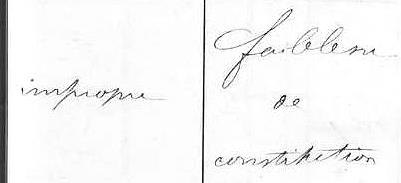 impropre
faiblesse
de
constitution